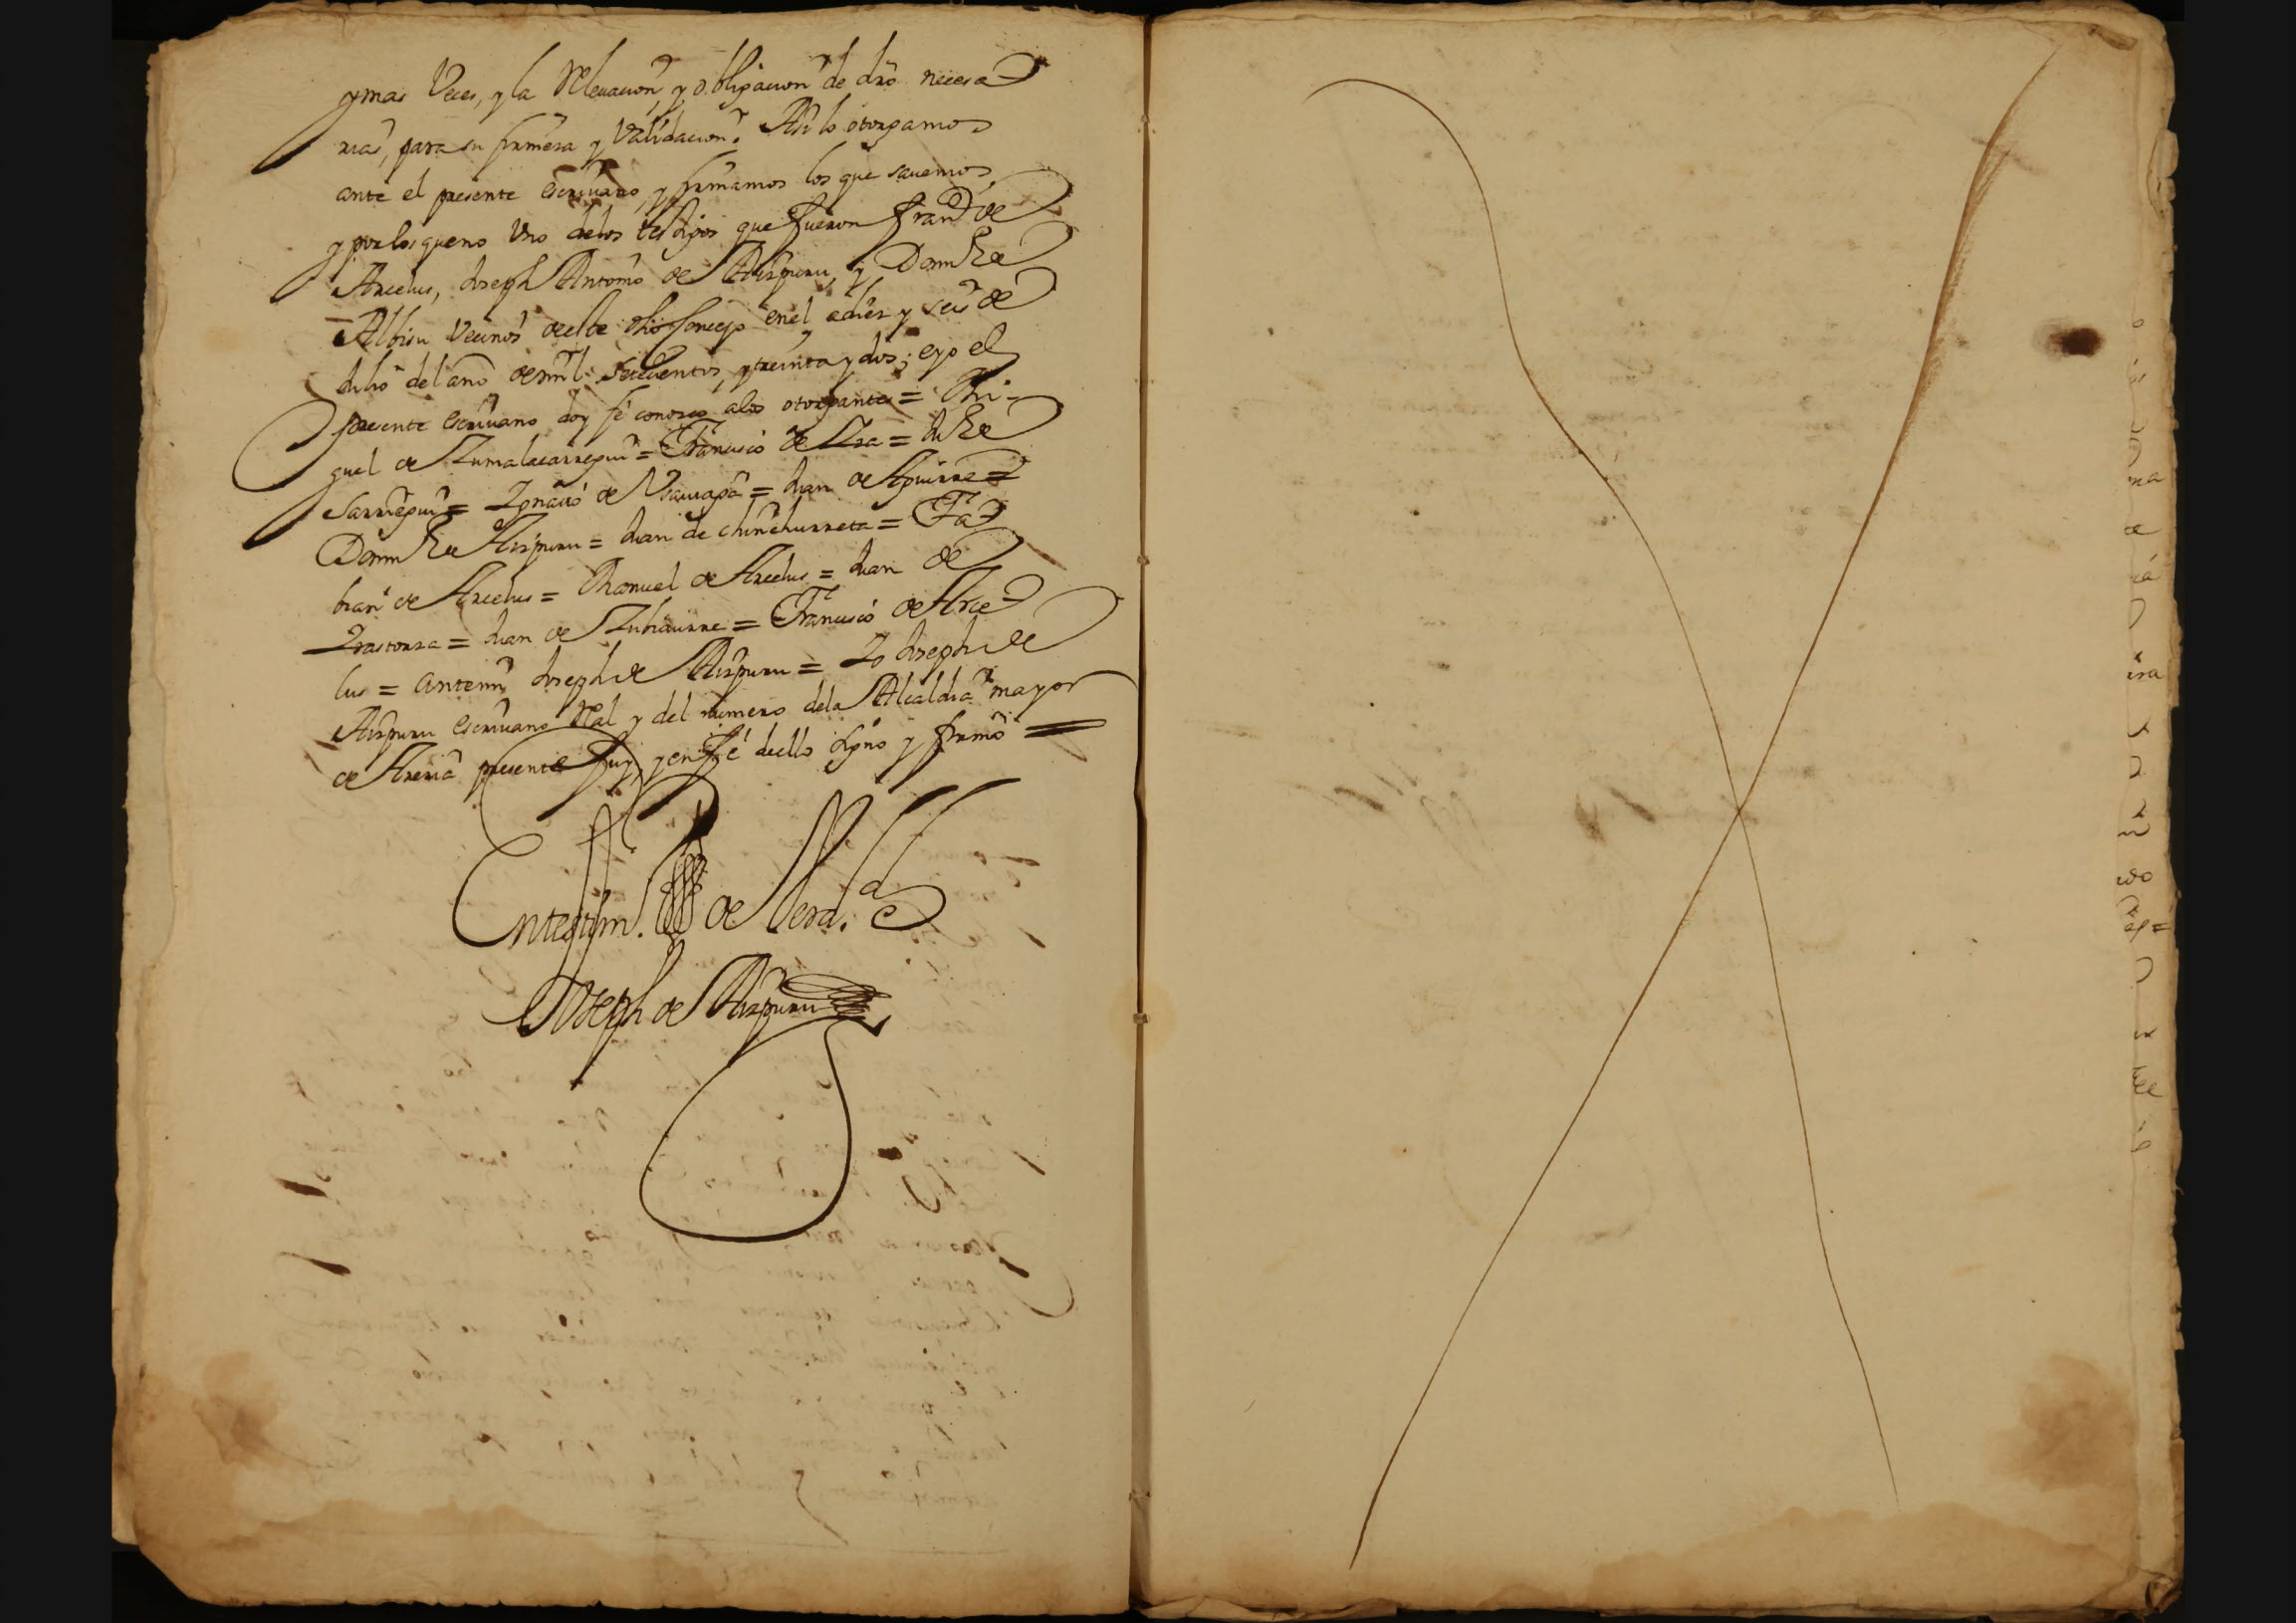 y mas Veces, y la Relevacion, y obligacion de dro necesa
rias, para su firmesa y Validacion. Asi lo otorgamos
ante el presente escrivano, y firmamos los que savemos,
y por los que no Uno de los testigos que fueron Franco de
Arcelus, Joseph Antonio de Aizpuru, y Domin de
Albisu Vecinos de este dho Concejo en el a diez y seis de
Julio del año de mil setecientos, y treinta y dos; e yo el
presente escrivano doy fe conozco a los otorgantes = Mi-
guel de Zumalacarregui = Francisco de = Ju de
Sarriegui = Ignacio de = Juan de Aguirre =
Domin de Aizpuru = Juan de chinchurreta = Fa
bian de Arcelus = Manuel de Arcelus = Juan de
Irastorza = Juan de Zubiaurre = Francisco de Arce
lus = antemi Joseph de Aizpuru = Yo Joseph de
Aizpuru escrivano Real y del numero de la Alcaldia mayor
de Areria presente fuy, y en fe de ello signo y firmo =
En testim. de Verd.d
Joseph de Aizpuru